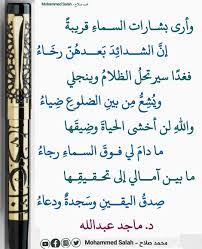 Mohammed Salah - محمد صلاح
وأرى بشارات السماءِ قريبةً
إنَّ الشدائدَ بَعدهُنَّ رخَاءُ
فغدًا سيرتحلُ الظلامُ وينجلي
ويُشِعُّ مِن بينِ الضلوعِ ضِياءُ
واللهِ لن أخشى الحياةَ وضِيقَها
ما دامَ لي فوقَ السماءِ رجاءُ
ما بين آمالي إلى تحقيقِها
صِدقُ اليقينِ وسَجدةٌ ودعاءُ
د. ماجد عبدالله
Mohammed Salah - محمد صلاح